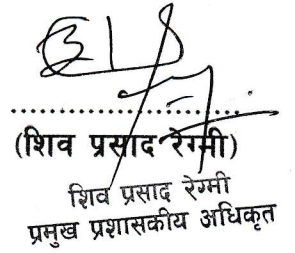 (शिव प्रसाद रेग्मी)
शिव प्रसाद रेग्मी
प्रमुख प्रशासकीय अधिकृत